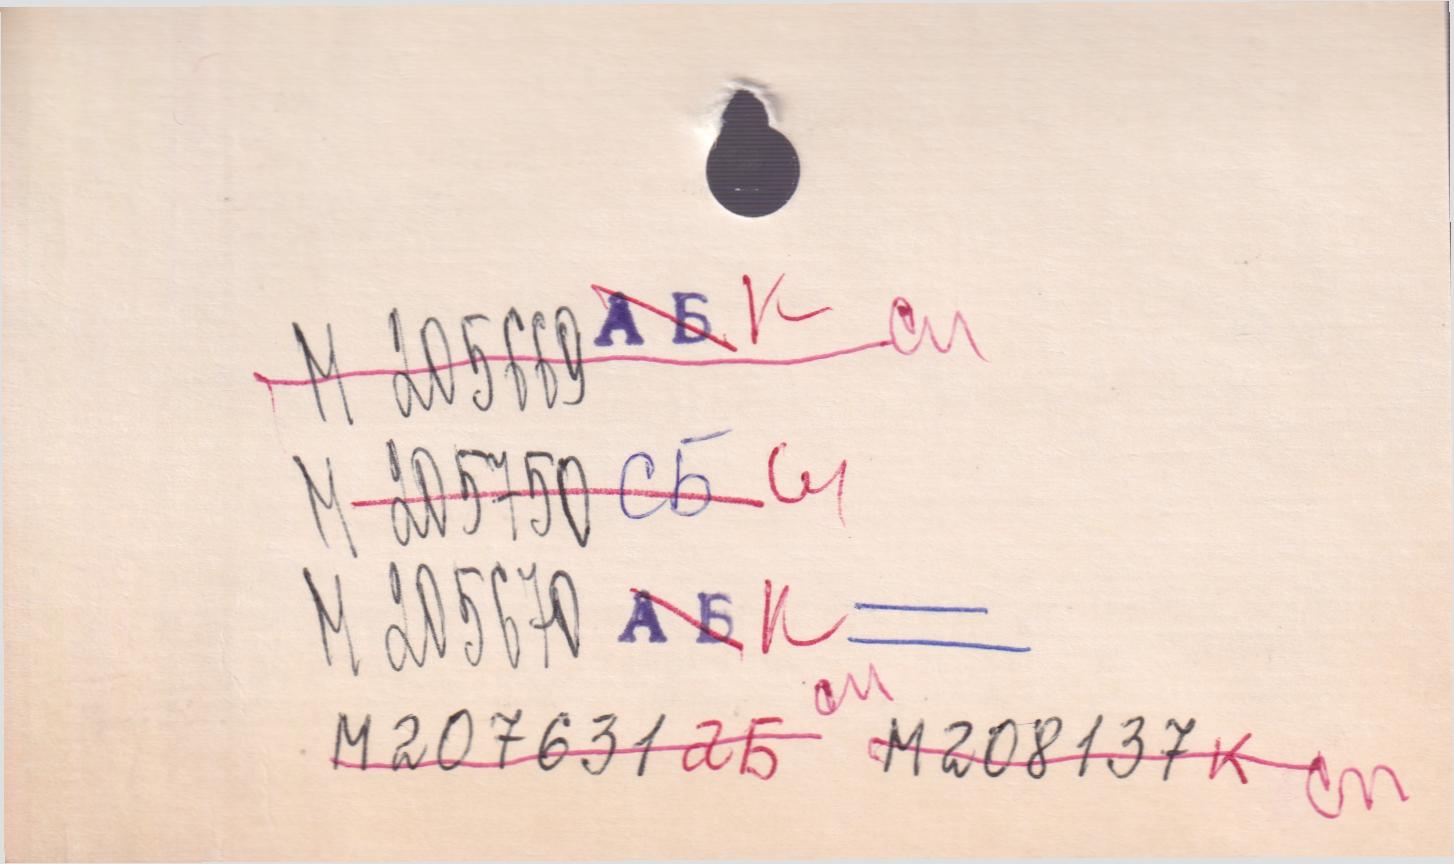 М 205669 АБ К сп
М 205750 СБ Сп
М 205670 АБ К
сп
М207631 аБ М208137 К сп